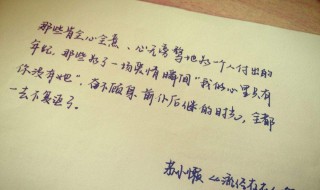 那些肯全心全意、心无旁骛地为一个人付出的
年纪，那些为了一场爱情瞬间“我的心里只有
你没有她”，奋不顾身、前仆后继的时光，全都
一去不复返了。
苏小懒《流年